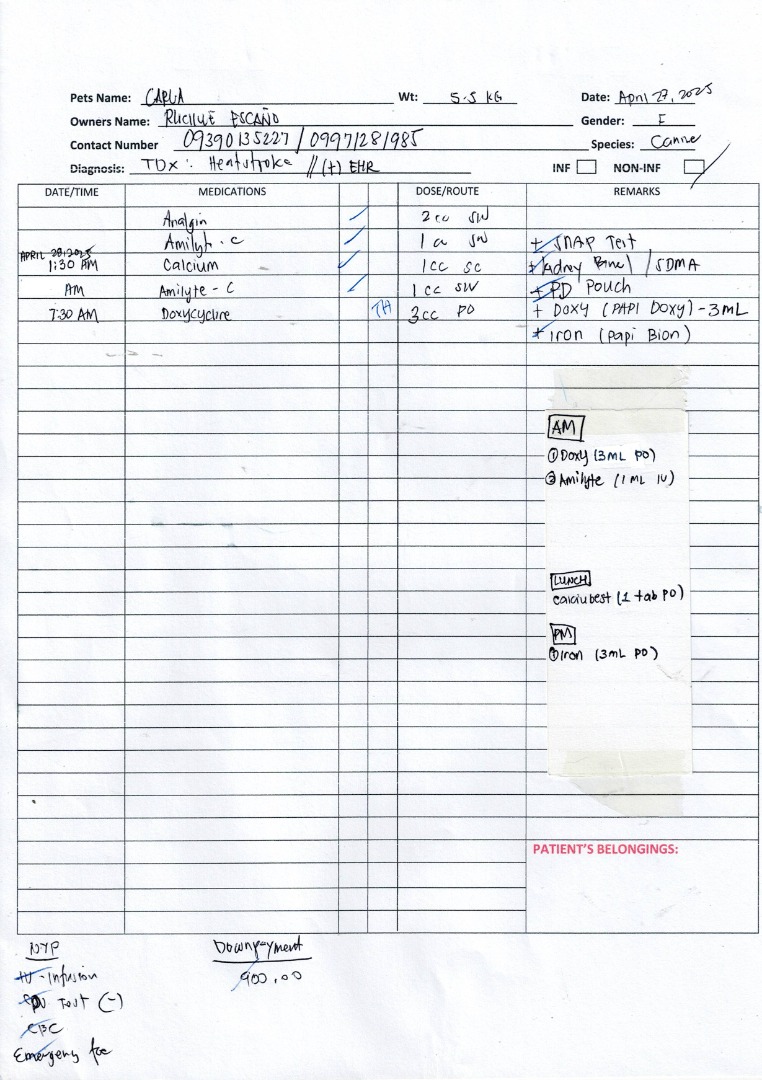 Pets Name: CARLA Wt: 5.5 KG Date: April 27, 2025
Owners Name: RUCHUE ESCAÑO Gender: F
Contact Number 09390135227 / 09971281985 Species: Canine
Diagnosis: TDx: Heatstroke // (+) EHR INF NON-INF
DATE/TIME MEDICATIONS DOSE/ROUTE REMARKS
Analgin 2cc SW
Amilyt-C 1cc SW + SNAP Test
APRIL 28, 2025
1:30 AM Calcium 1cc SC + kidney Panel / SDMA
AM Amilyte - C 1 cc SW + PD Pouch
7:30 AM Doxycycline TH 3cc PO + DOXY (PAPI DOXY) - 3ML
+ Iron (Papi Bion)
AM
① Doxy (3mL PO)
② Amilyte (1 mL IV)
LUNCH
calciubest (1 tab PO)
PM
① Iron (3mL PO)
PATIENT'S BELONGINGS:
NYP Downpayment
IV-Infusion 900.00
Test (-)
CBC
Emergency fee